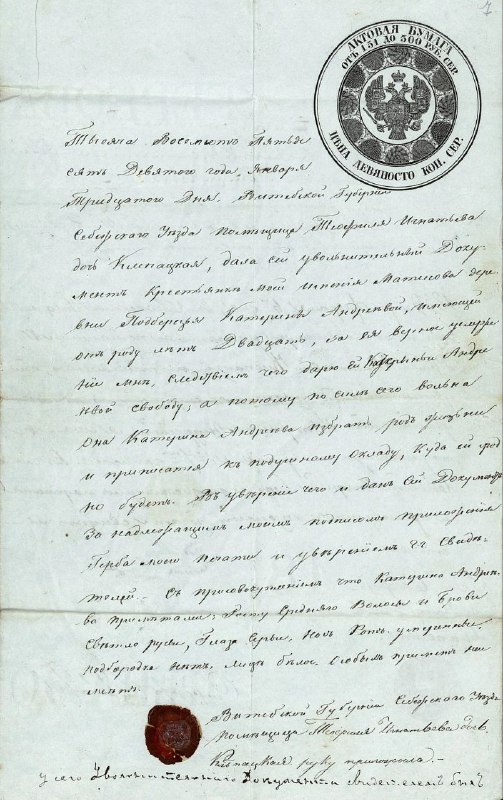 АКТОВАЯ БУМАГА
ОТЪ 151 ДО 300 РУБ. СЕР.
ЦѢНА ДЕВЯНОСТО КОП. СЕР.
Тысяча Восемьсотъ Пятьде
сятъ Девятого года Января
Тридцатого Дня. Витебской Губерніи
Себежскаго Уѣзда Помѣщица Теофиля Игнатьева
дочь, дала сей увольнительный Доку
ментъ Крестьянкѣ моей имѣнія дере
вни Катеринѣ Андреевой, имѣющей
отъ роду лѣтъ Двадцать, за ея верное
мнѣ, слѣдствіемъ чего дарю ей Катерины Андре
евой свободу; а потому по силѣ сего вольна
она Катерина Андреева избрать родъ жизни
и приписатся къ подушному Окладу, куда ей год
но будетъ. Въ увѣреніе чего и данъ Сей Документъ
За надлежащимъ моимъ подписомъ приложенія
Герба моего печати и увѣреніемъ Свидѣ
телей. Съ присовокупленіемъ что Катерина Андрее
ва примѣтами: Росту Средняго Волоса и Брови
Свѣтло русы, Глаза Серы, Носъ Ротъ умеренные,
подбородка нѣтъ, лицъ бѣло. Особыхъ примѣтъ не
имѣетъ.
Витебской Губерніи Себежскаго Уѣзда
помѣщица Теофиля Игнатьева дочь
руку приложила.
У сего Увольнительнаго Документа свидетелемъ былъ